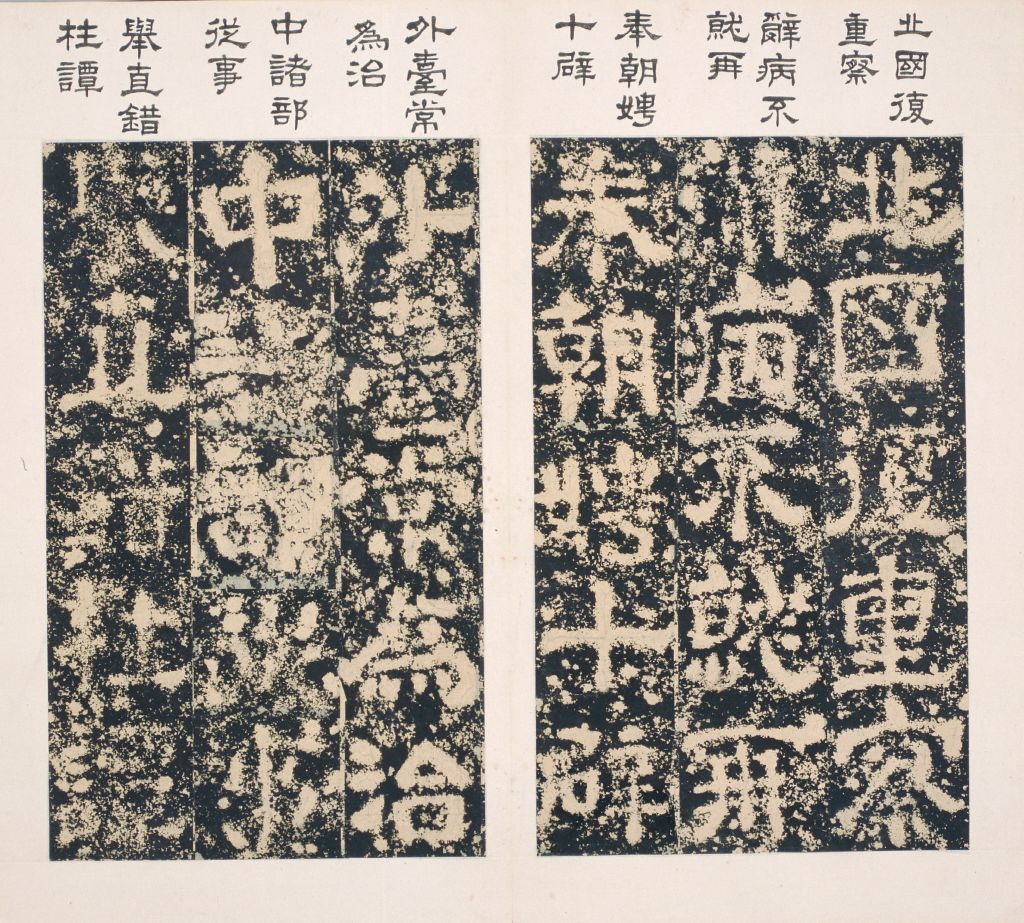 北國復
重察
辭病不
就再
奉朝娉
十辟
外臺常
為治
中諸部
從事
舉直錯
枉譚
北國復重察
辭病不就再
奉朝娉十辟
外臺常為治
中諸部從事
舉直錯枉譚